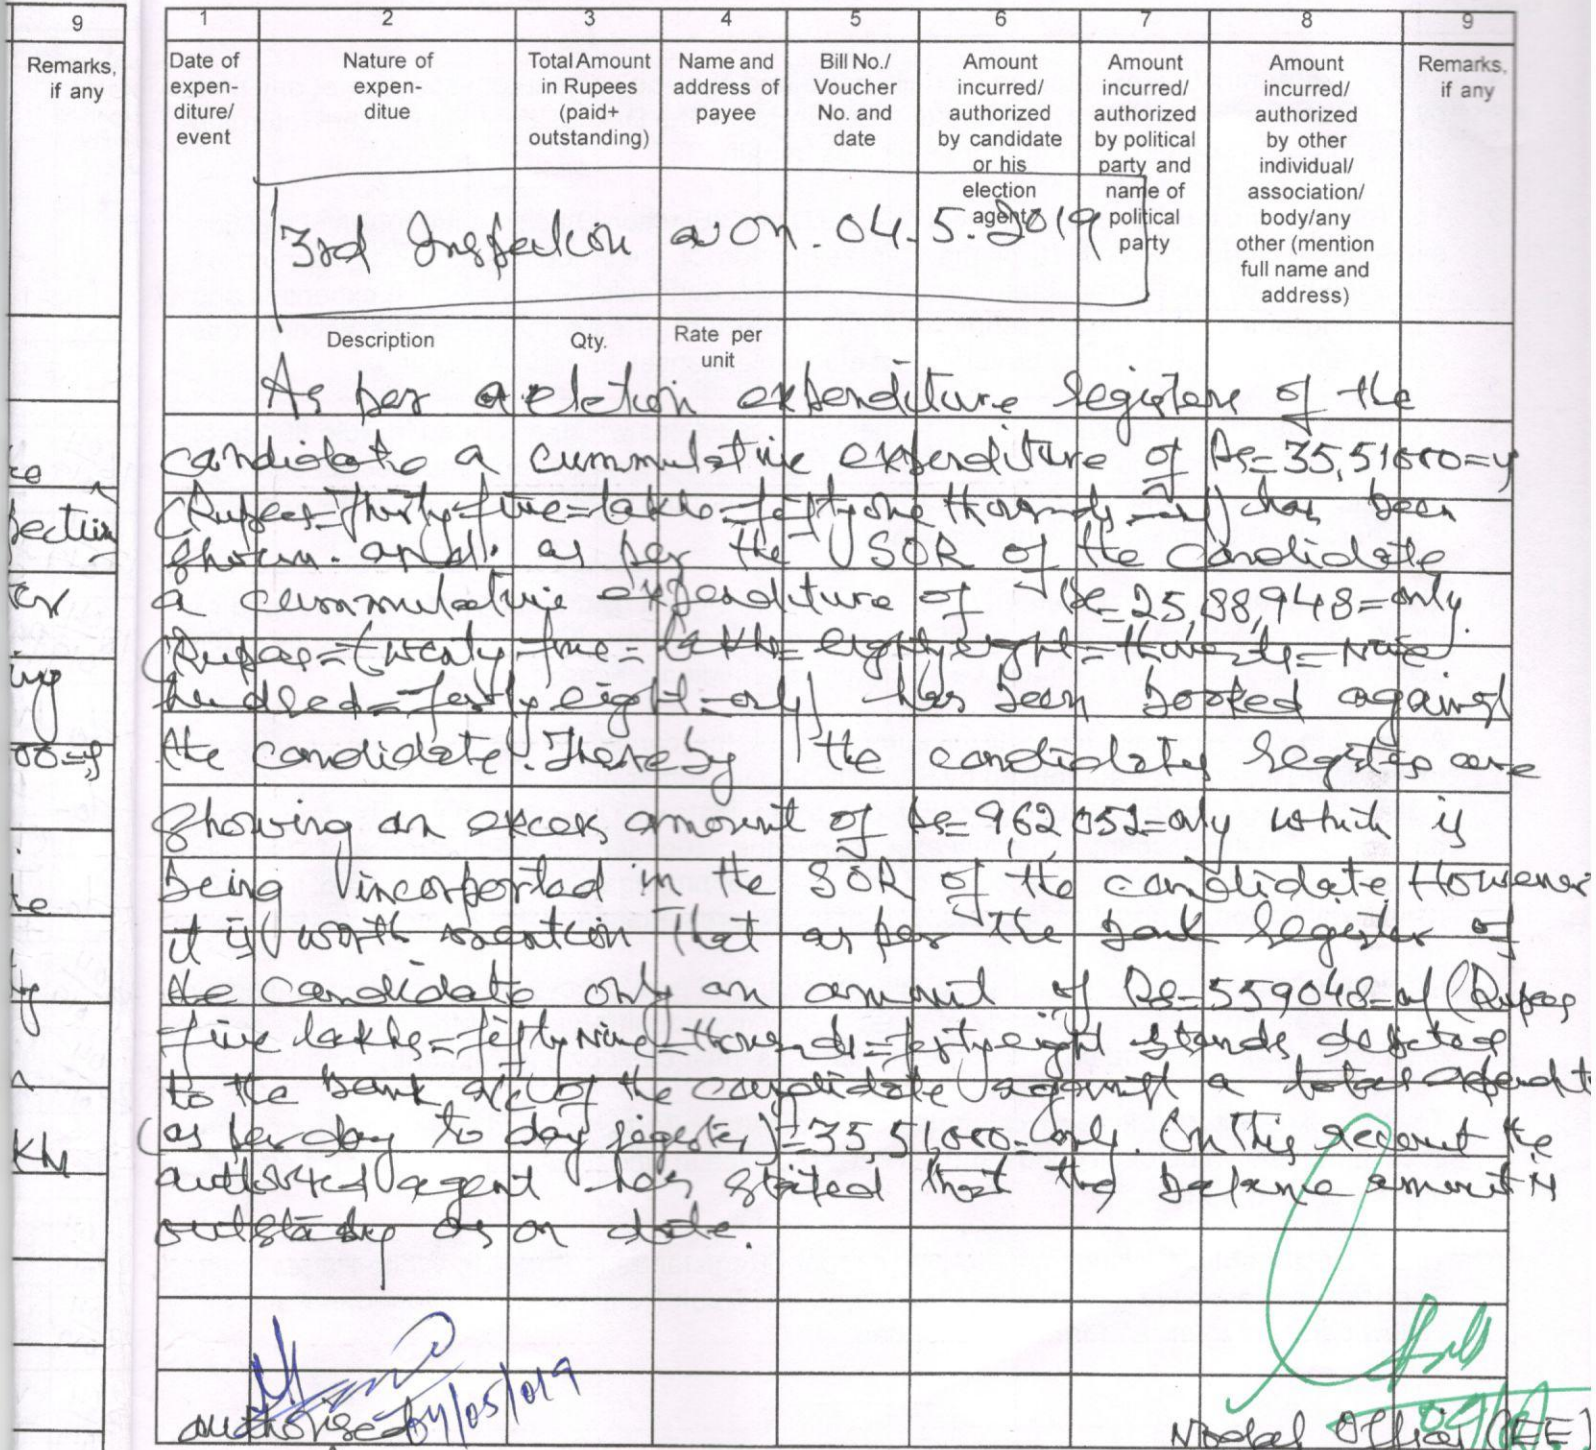 9 1 2 3 4 5 6 7 8 9
Remarks, if any
Date of expen- diture/ event
Nature of expen- ditue
Total Amount in Rupees (paid+ outstanding)
Name and address of payee
Bill No./ Voucher No. and date
Amount incurred/ authorized by candidate or his election agent
Amount incurred/ authorized by political party and name of political party
Amount incurred/ authorized by other individual/ association/ body/any other (mention full name and address)
Remarks, if any
3rd Inspection as on. 04.5.2019
Description Qty. Rate per unit
As per election expenditure registers of the
candidate a cummulative expenditure of Rs=35,51000=
(Rupees=thirty-five=lakhs=fifty one thousands) has been
shown. and. as per the SOR of the candidate
a cummulative expenditure of Rs=25,88,948=only.
(Rupees=twenty five=lakhs=eighty eight=thousands=Nine
hundred=forty eight=only) has been booked against
the candidate. Thereby the candidates registers are
showing an excess amount of Rs=962,052=only which is
being incorported in the SOR of the candidate However
it is worth mention that as per the bank register of
the candidate only an amount of Rs=559048= (Rupees
five lakhs=fifty Nine=thousands=forty eight stands debited
to the bank a/c of the candidate against a total
(as per day to day register)=35,51,000=only. On this account the
authorised agent has stated that the balance amount is
outstanding as on date.
authorised 04/05/019
Nodal Officer (EE)